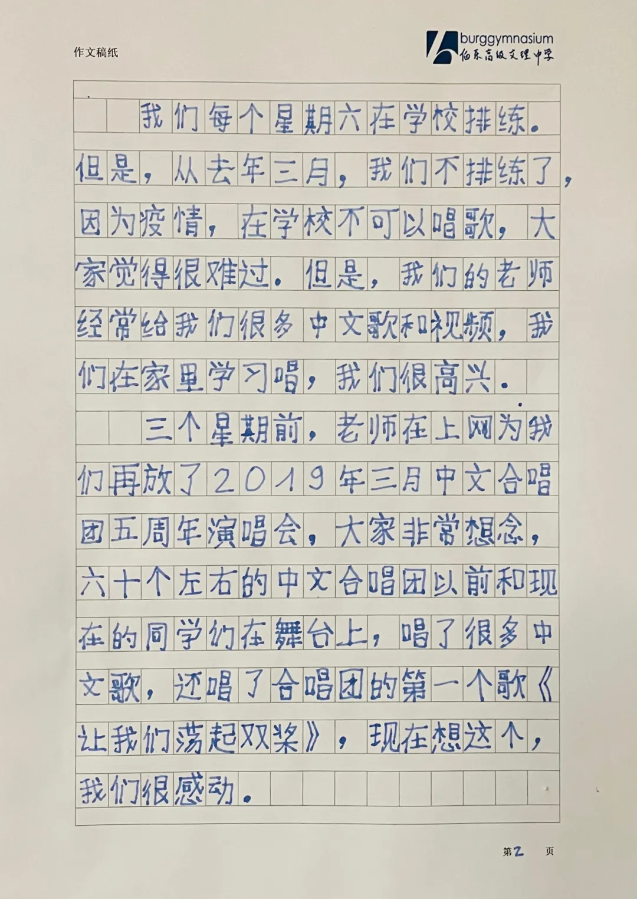 作文稿纸
burggymnasium
伯乐高级文理中学
我们每个星期六在学校排练。
但是，从去年三月，我们不排练了，
因为疫情，在学校不可以唱歌，大
家觉得很难过．但是，我们的老师
经常给我们很多中文歌和视频，我
们在家里学习唱，我们很高兴．
三个星期前，老师在上网为我
们再放了2019年三月中文合唱
团五周年演唱会，大家非常想念，
六十个左右的中文合唱团以前和现
在的同学们在舞台上，唱了很多中
文歌，还唱了合唱团的第一个歌《
让我们荡起双桨》，现在想这个，
我们很感动．
第2页